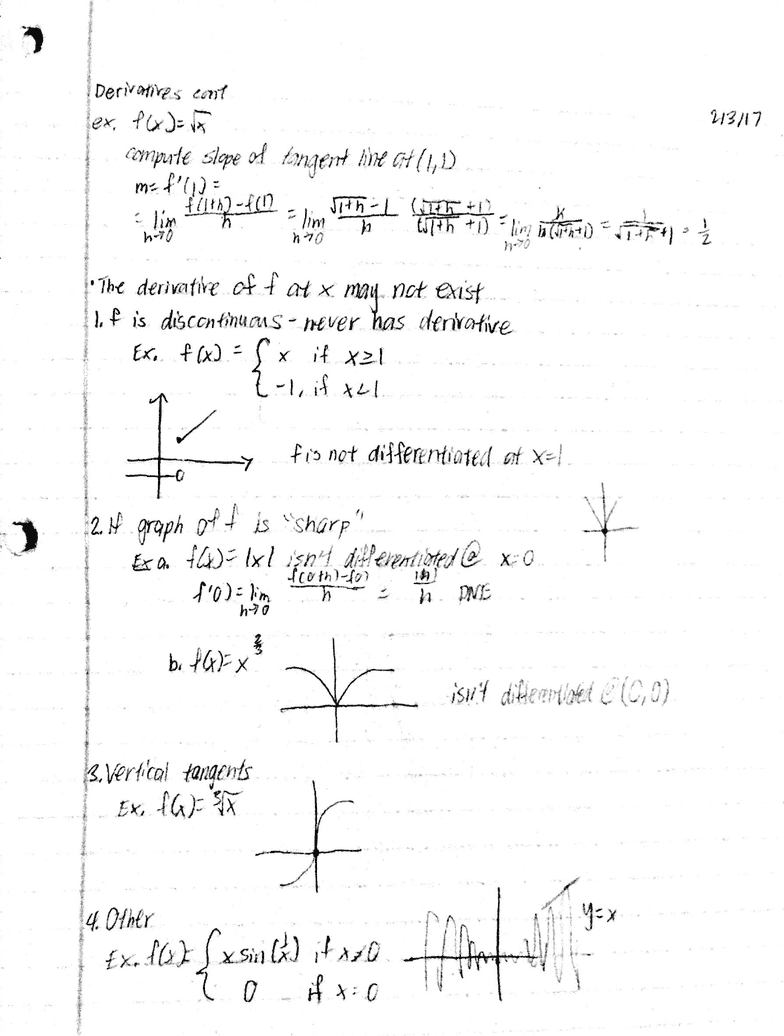 Derivatives cont
2/3/17
ex. f(x)=√x
compute slope of tangent line at (1,1)
m=f'(1)=
= lim h→0 (f(1+h)-f(1))/h = lim h→0 (√(1+h) -1)/h (√(1+h) +1)/(√(1+h) +1) = lim h→0 h/(h(√(1+h)+1)) = 1/(√(1+h)+1) = 1/2
•The derivative of f at x may not exist
1. f is discontinuous - never has derivative
Ex. f(x) = { x if x≥1
-1, if x<1
f is not differentiated at x=1
2. If graph of f is "sharp"
Ex a. f(x)=|x| isn't differentiated @ x=0
f'0)=lim h→0 (f(0+h)-f(0))/h = |h|/h DNE
b. f(x)=x^(2/3)
isn't differentiated @(0,0)
3. Vertical tangents
Ex. f(x)=∛x
4. Other
y=x
Ex. f(x)= { x sin(1/x) if x≠0
0 if x=0